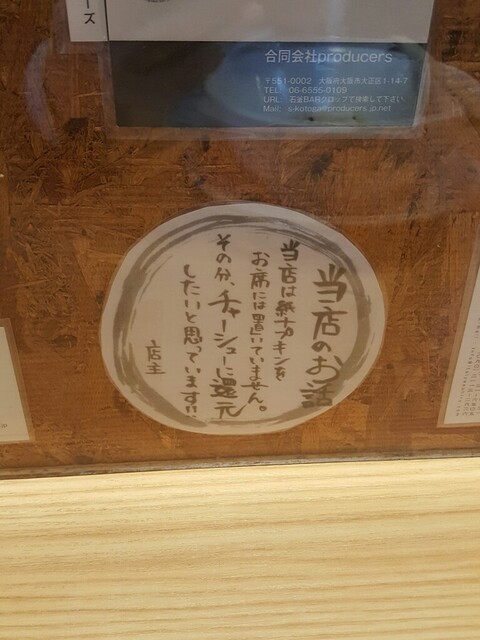 ーズ
合同会社producers
〒551-0002 大阪府大阪市大正区1-14-7
TEL 06-6555-0109
URL 石釜BARクロップで検索して下さい
Mail: s-kotoga@producers.jp.net
当店のお話
当店は紙ナプキンを
お席には置いていません。
その分、チャーシューに還元
したいと思っています!!
店主